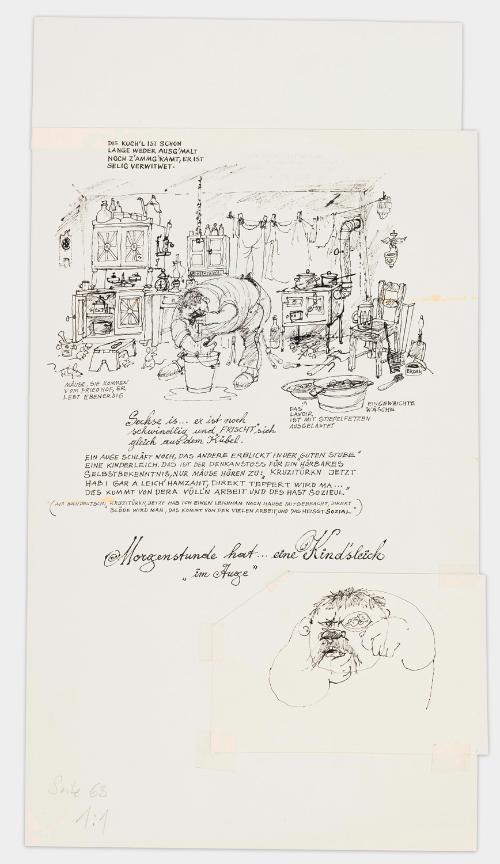 DIE KUCH'L IST SCHON
LANGE WEDER AUSG'MALT
NOCH Z'AMMG'KAMT, ER IST
SELIG VERWITWET.
MÄUSE, SIE KOMMEN
VOM FRIEDHOF, ER
LEBT EBENERDIG
DAS
LAVOIR
IST MIT STIEPELFETZEN
AUSGELASTET
EINGEWEICHTE
WÄSCHE
Sechse is... er ist noch
schwindlig und „FRISCHT" sich
gleich aus dem Kübel.
EIN AUGE SCHLÄFT NOCH, DAS ANDERE ERBLICKT IN DER GUTEN STUBE"
EINE KINDERLEICH. DAS IST DER DENKANSTOSS FÜR EIN HÖRBARES
SELBSTBEKENNTNIS, NUR MÄUSE HÖREN ZU: „KRUZITÜRKN JETZT
HAB I GAR A LEICH' HAMZAHT, DIREKT TEPPERT WIRD MA...
DES KUMMT VON DERA VÜLL'N ARBEIT UND DES HAST SOZIEUL."
KRUZITÜRKEN, JETZT HAB ICH EINEN LEICHNAM NACH HAUSE MITGEBRACHT, DIREKT
BLÖDE WIRD MAN, DAS KOMMT VON DER VIELEN ARBEIT, UND DAS HEISST SOZIAL"
Morgenstunde hat... eine Kindsleich
„im Auge"
Seite 63
1:1